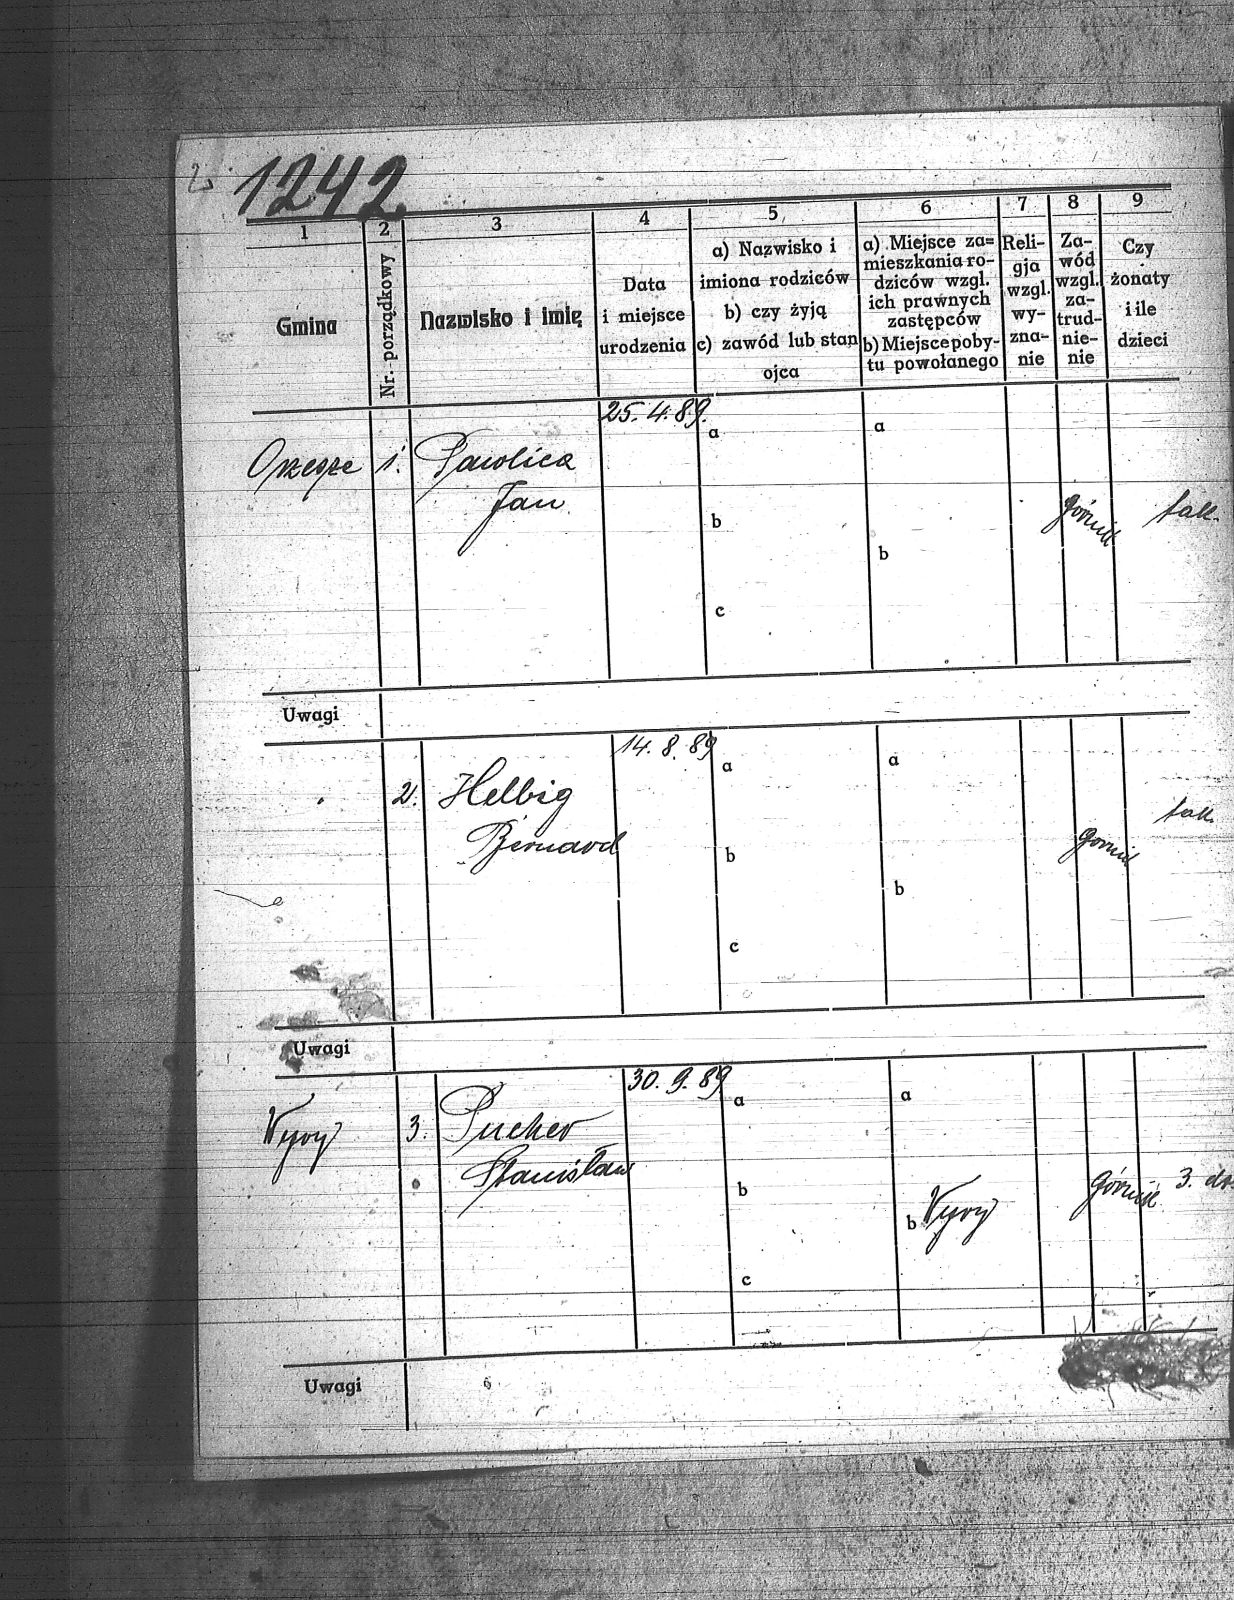 1242
1
2
3
4
5
6
7
8
9
Gmina
Nr. porządkowy
Nazwisko i imię
Data
i miejsce
urodzenia
a) Nazwisko i
imiona rodziców
b) czy żyją
c) zawód lub stan
ojca
a) Miejsce za=
mieszkania ro-
dziców wzgl.
ich prawnych
zastępców
b) Miejsce poby-
tu powołanego
Reli-
gja
wzgl.
wy-
zna-
nie
Za-
wód
wzgl.
za-
trud-
nie-
nie
Czy
żonaty
i ile
dzieci
Orzesze 1. Pawlica 25.4.89. a a
Jan
b górnik tak.
b
c
Uwagi
2. Helbig 14.8.89 a a
Bernard
b górnik tak.
b
c
Uwagi
Wyry 3. Pucher 30.9.89 a a
Stanisław
b górnik 3.
b Wyry
c
Uwagi